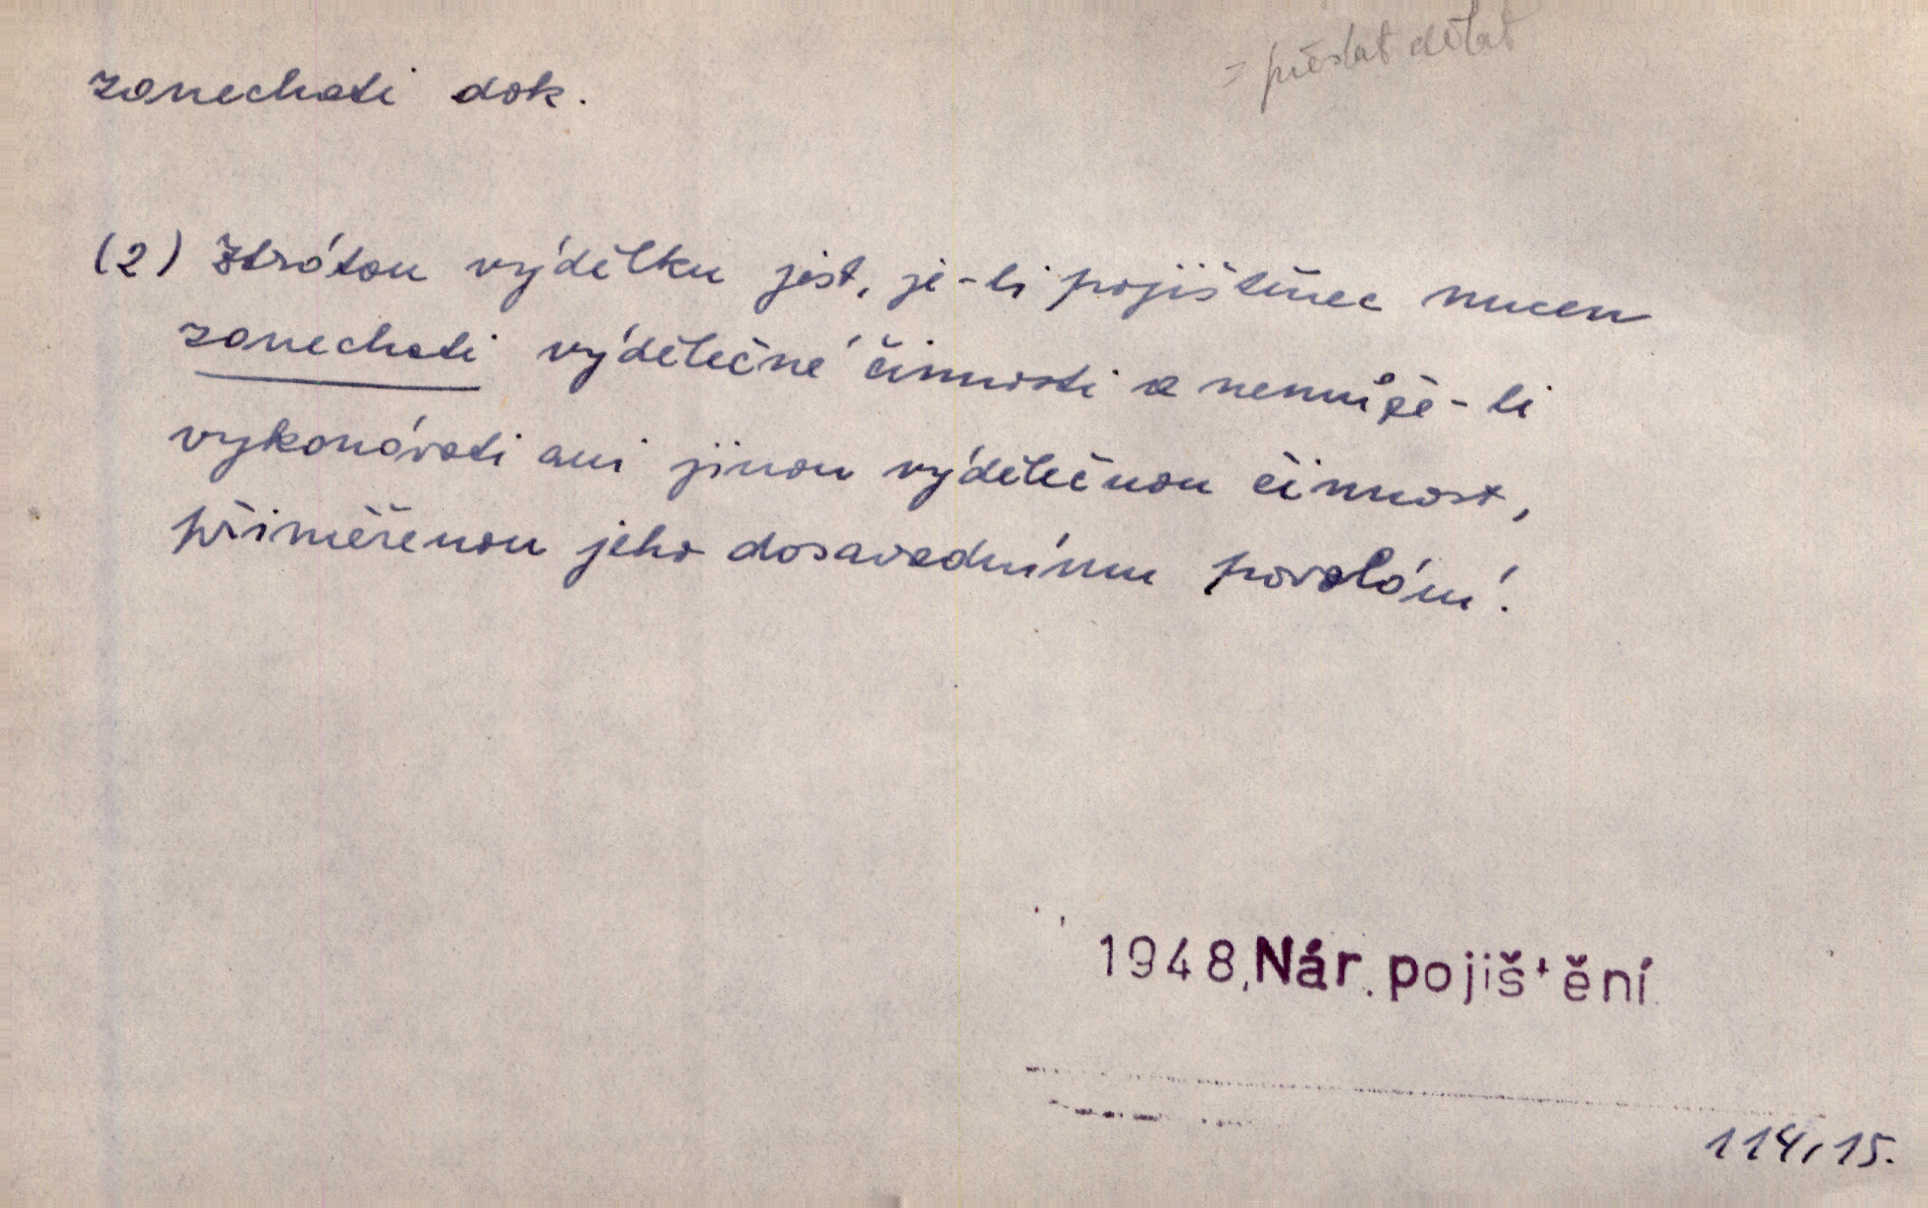 = přestat dělat
zanechati dok.
(2) Ztrátou výdělku jest, je-li pojištěnec nucen
zanechati výdělečné činnosti a nemůže-li
vykonávati ani jinou výdělečnou činnost,
přiměřenou jeho dosavadnímu povolání.
1948, Nár. pojištění
114, 15.